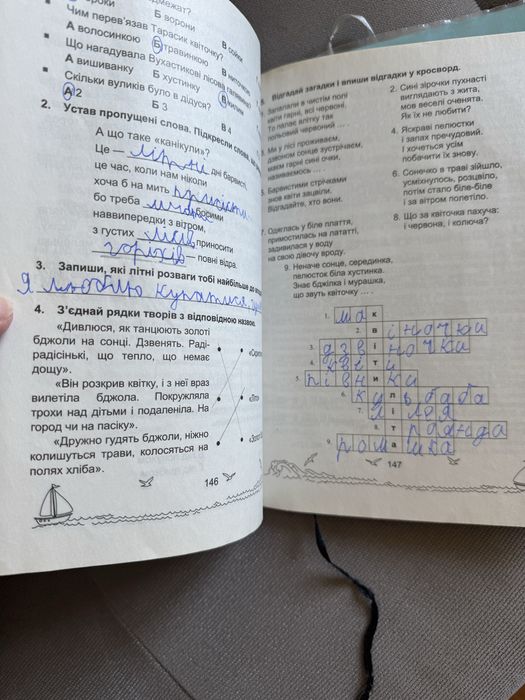 Чим перев'язав Тарасик квіточку?
А волосинкою
Б травинкою
Що нагадувала Вухастикові лісова галявина?
А вишиванку
Б хустинку
В килим
Скільки вуликів було в дідуся?
А 2
Б 3
В 4
2. Устав пропущені слова. Підкресли слова,
А що таке «канікули»?
Це — літні дні барвисті,
це час, коли нам ніколи
хоча б на мить присісти,
бо треба босими
наввипередки з вітром,
з густих лісів приносити
горіхів — повні відра.
3. Запиши, які літні розваги тобі найбільше до
Я люблю купатися,
4. З'єднай рядки творів з відповідною назвою.
«Дивлюся, як танцюють золоті
бджоли на сонці. Дзвенять. Раді-
радісінькі, що тепло, що немає
дощу».
«Він розкрив квітку, і з неї враз
вилетіла бджола. Покружляла
трохи над дітьми і подаленіла. На
город чи на пасіку».
«Дружно гудять бджоли, ніжно
колишуться трави, колосяться на
полях хліба».
146
Відгадай загадки і впиши відгадки у кросворд.
Запалали в чистім полі
квіти гарні, всі червоні.
То палає влітку так
польовий червоний ... .
2. Сині зірочки пухнасті
виглядають з жита,
мов веселі оченята.
Як їх не любити?
3. Ми у лісі проживаєм,
дзвоном сонце зустрічаєм,
маєм гарні сині очки,
називаємось ... .
4. Яскраві пелюстки
і запах пречудовий.
І хочеться усім
побачити їх знову.
5. Барвистими стрічками
знов квіти зацвіли.
Відгадайте, хто вони.
6. Сонечко в траві зійшло,
усміхнулось, розцвіло,
потім стало біле-біле
і за вітром полетіло.
7. Одяглась у біле плаття,
примостилась на лататті,
задивилася у воду
на свою дівочу вроду.
8. Що за квіточка пахуча:
і червона, і колюча?
9. Неначе сонце, серединка,
пелюсток біла хустинка.
Знає бджілка і мурашка,
що звуть квіточку ... .
1. мак
2. віночки
3. дзвіночки
4. квіти
5. півники
6. кульбаба
7. лілія
8. троянда
9. ромашка
147